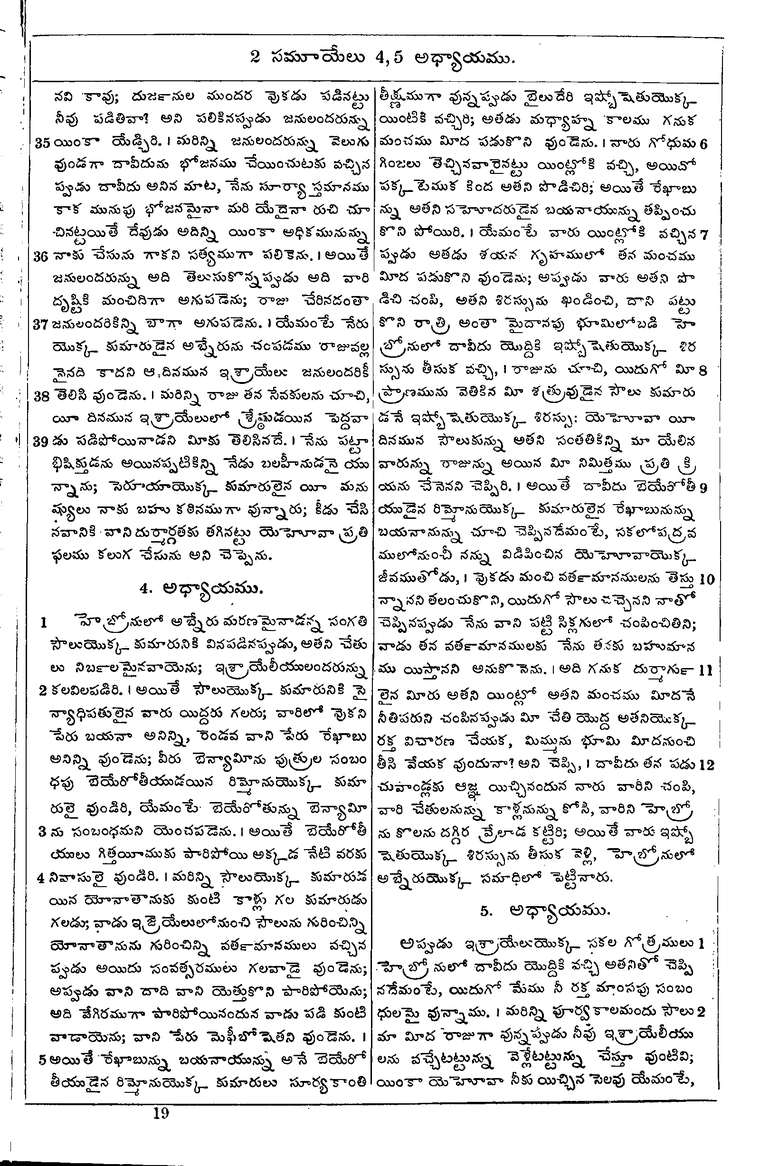 2 సమూయేలు 4, 5 అధ్యాయము.
నవి కావు; దుర్జనుల ముందర వొకడు పడినట్టు
నీవు పడితివా? అని పలికినప్పుడు జనులందరున్ను
35 యింకా యేడ్చిరి. । మరిన్ని జనులందరున్ను వెలుగు
వుండగా దావీదును భోజనము చేయించుటకు వచ్చిన
ప్పుడు దావీదు అనిన మాట, నేను సూర్యా స్తమానము
కాక మునుపు భోజనమైనా మరి యేదైనా రుచి చూ
చినట్టయితే దేవుడు అదిన్ని యింకా అధికమునున్ను
36 నాకు చేసును గాకని సత్యముగా పలికెను. । అయితే
జనులందరున్ను అది తెలుసుకొన్నప్పుడు అది వారి
దృష్టికి మంచిదిగా అగుపడెను; రాజు చేరినదంతా
37 జనులందరికిన్ని బాగా అగుపడెను. । యేమంటే నేరు
యొక్క కుమారుడైన అబ్నేరును చంపడము రాజువల్ల
నైనది కాదని ఆ దినమున ఇశ్రాయేలు జనులందరికీ
38 తెలిసి వుండెను. । మరిన్ని రాజు తన సేవకులను చూచి,
యీ దినమున ఇశ్రాయేలులో శ్రేష్ఠుడయిన పెద్దవా
39 డు పడిపోయినాడని మీకు తెలిసినదే. । నేను పట్టా
భిషిక్తుడను అయినప్పటికిన్ని నేడు బలహీనుడనై యు
న్నాను; సెరూయాయొక్క కుమారులైన యీ మను
ష్యులు నాకు బహు కఠినముగా వున్నారు; కీడు చేసి
నవానికి వాని దుర్మార్గతకు తగినట్టు యెహోవా ప్రతి
ఫలము కలుగ చేసును అని చెప్పెను.
4. అధ్యాయము.
1 హెబ్రోనులో అబ్నేరు మరణమైనాడన్న సంగతి
సౌలుయొక్క కుమారునికి వినపడినప్పుడు, అతని చేతు
లు నిర్బలమైనవాయెను; ఇశ్రాయేలీయులందరున్ను
2 కలవిలపడిరి. । అయితే సౌలుయొక్క కుమారునికి సై
న్యాధిపతులైన వారు యిద్దరు గలరు; వారిలో వొకని
పేరు బయనా అనిన్ని, రెండవ వాని పేరు రేఖాబు
అనిన్ని వుండెను; వీరు బెన్యామీను పుత్రుల సంబం
ధపు బెయేరోతీయుడయిన రిమ్మోనుయొక్క కుమా
రులై వుండిరి, యేమంటే బెయేరోతున్ను బెన్యామీ
3 ను సంబంధమని యెంచపడెను. । అయితే బెయేరోతీ
యులు గిత్తయీముకు పారిపోయి అక్కడ నేటి వరకు
4 నివాసులై వుండిరి. । మరిన్ని సౌలుయొక్క కుమారుడ
యిన యోనాతానుకు కుంటి కాళ్లు గల కుమారుడు
గలడు; వాడు ఇజ్రెయేలులోనుంచి సౌలును గురించిన్ని
యోనాతానును గురించిన్ని వర్తమానములు వచ్చిన
ప్పుడు అయిదు సంవత్సరములు గలవాడై వుండెను;
అప్పుడు వాని దాది వాని యెత్తుకొని పారిపోయెను;
అది వేగిరముగా పారిపోయినందున వాడు పడి కుంటి
వాడాయెను; వాని పేరు మెఫీబోషెతని వుండెను. ।
5 అయితే రేఖాబున్ను బయనాయున్ను అనే బెయేరో
తీయుడైన రిమ్మోనుయొక్క కుమారులు సూర్య కాంతి
తీక్ష్ణముగా వున్నప్పుడు బైలుదేరి ఇష్బోషెతుయొక్క
యింటికి వచ్చిరి; అతడు మధ్యాహ్న కాలము గనుక
మంచము మీద పడుకొని వుండెను. । వారు గోధుమ 6
గింజలు తెచ్చినవారైనట్టు యింట్లోకి వచ్చి, అయిదో
పక్కటెముక కింద అతని పొడిచిరి; అయితే రేఖాబు
న్ను అతని సహోదరుడైన బయనాయున్ను తప్పించు
కొని పోయిరి. । యేమంటే వారు యింట్లోకి వచ్చిన 7
ప్పుడు అతడు శయన గృహములో తన మంచము
మీద పడుకొని వుండెను; అప్పుడు వారు అతని పొ
డిచి చంపి, అతని శిరస్సును ఖండించి, దాని పట్టు
కొని రాత్రి అంతా మైదానపు భూమిలోబడి హె
బ్రోనులో దావీదు యొద్దికి ఇష్బోషెతుయొక్క శిర
స్సును తీసుక వచ్చి, । రాజును చూచి, యిదుగో మీ 8
ప్రాణమును వెతికిన మీ శత్రువుడైన సౌలు కుమారు
డనే ఇష్బోషెతుయొక్క శిరస్సు: యెహోవా యీ
దినమున సౌలుకున్ను అతని సంతతికిన్ని మా యేలిన
వారున్ను రాజున్ను అయిన మీ నిమిత్తము ప్రతి క్రి
యను చేసెనని చెప్పిరి. । అయితే దావీదు బెయేరోతీ 9
యుడైన రిమ్మోనుయొక్క కుమారులైన రేఖాబునున్ను
బయనానున్ను చూచి చెప్పినదేమంటే, సకలోపద్రవ
ములోనుంచీ నన్ను విడిపించిన యెహోవాయొక్క
జీవముతోడు, । వొకడు మంచి వర్తమానములను తెస్తు 10
న్నానని తలంచుకొని, యిదుగో సౌలు చచ్చెనని నాతో
చెప్పినప్పుడు నేను వాని పట్టి సిక్లగులో చంపించితిని;
వాడు తన వర్తమానములకు నేను తనకు బహుమాన
ము యిస్తానని అనుకొనెను. । అది గనుక దుర్మార్గు 11
లైన మీరు అతని యింట్లో అతని మంచము మీదనే
నీతిపరుని చంపినప్పుడు మీ చేతి యొద్ద అతనియొక్క
రక్త విచారణ చేయక, మిమ్మును భూమి మీదనుంచి
తీసి వేయక వుందునా? అని చెప్పి, । దావీదు తన పడు 12
చువాండ్లకు ఆజ్ఞ యిచ్చినందున వారు వారిని చంపి,
వారి చేతులనున్ను కాళ్లనున్ను కోసి, వారిని హెబ్రో
ను కొలను దగ్గిర వ్రేలాడ కట్టిరి; అయితే వారు ఇష్బో
షెతుయొక్క శిరస్సును తీసుక వెళ్లి, హెబ్రోనులో
అబ్నేరుయొక్క సమాధిలో పెట్టినారు.
5. అధ్యాయము.
అప్పుడు ఇశ్రాయేలుయొక్క సకల గోత్రములు 1
హెబ్రోనులో దావీదు యొద్దికి వచ్చి అతనితో చెప్పి
నదేమంటే, యిదుగో మేము నీ రక్త మాంసపు సంబం
ధులమై వున్నాము. । మరిన్ని పూర్వ కాలమందు సౌలు 2
మా మీద రాజుగా వున్నప్పుడు నీవు ఇశ్రాయేలీయు
లను వచ్చేటట్టున్ను వెళ్లేటట్టున్ను చేస్తూ వుంటివి;
యింకా యెహోవా నీకు యిచ్చిన సెలవు యేమంటే,
19